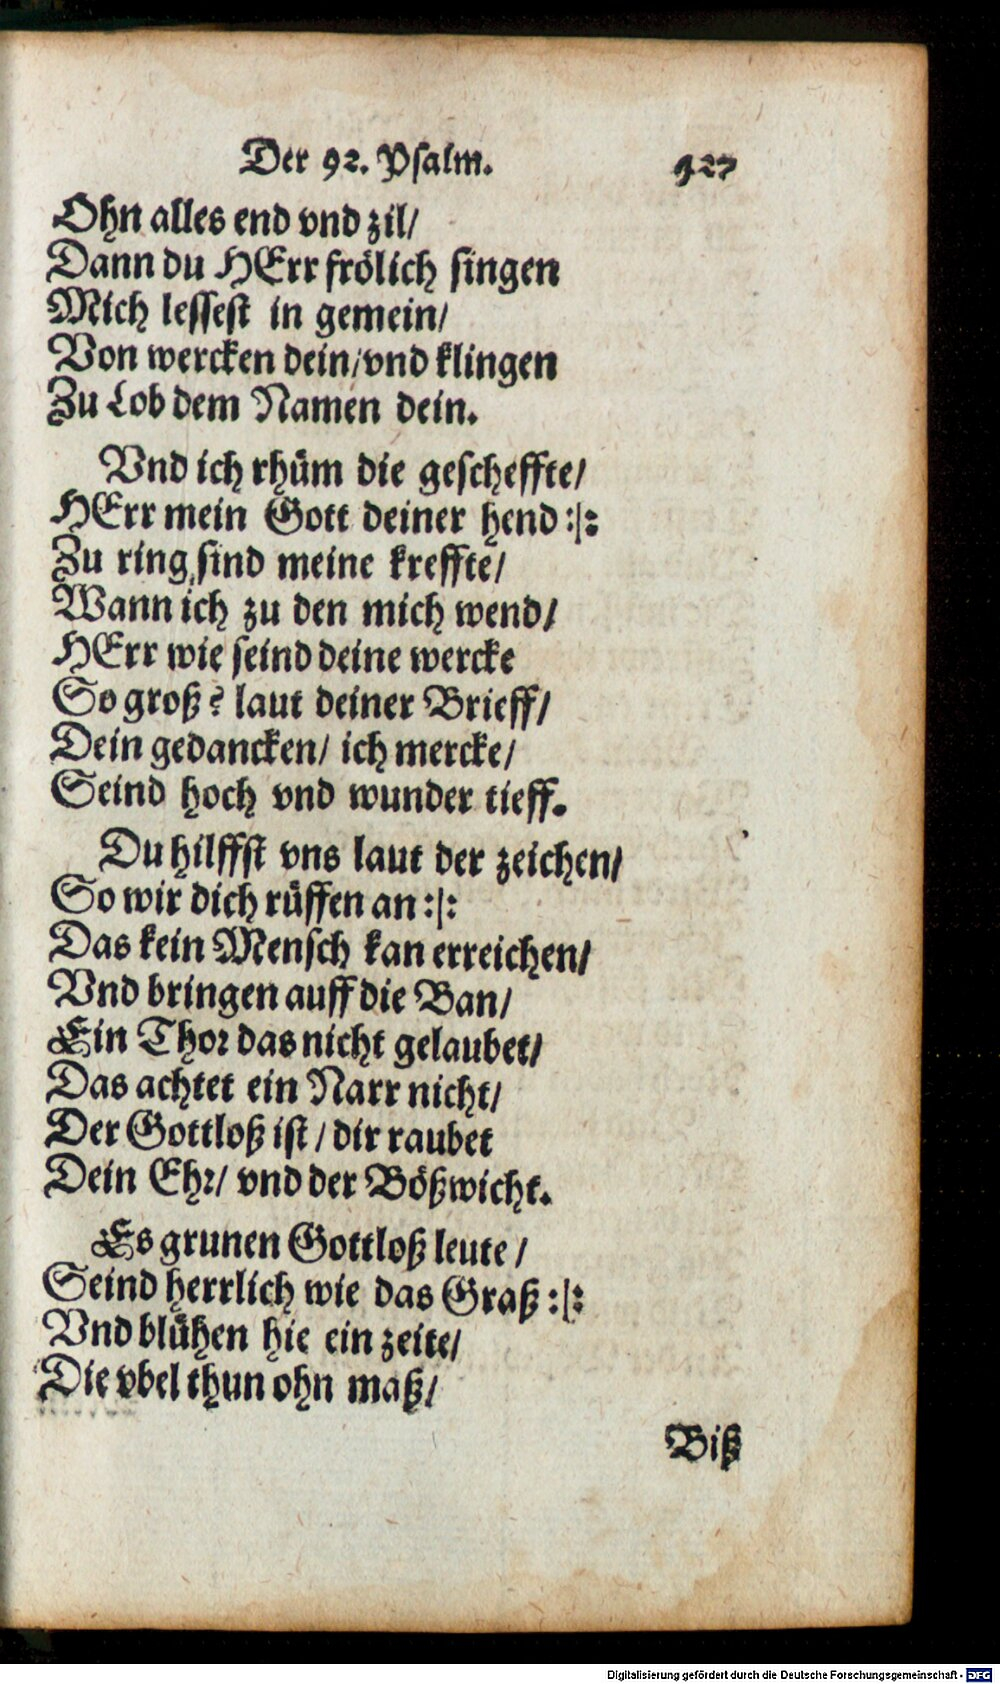 Der 92. Psalm. 427
Ohn alles end vnd zil/
Dann du HErr frölich singen
Mich lessest in gemein/
Von wercken dein/vnd klingen
Zu Lob dem Namen dein.
Vnd ich rhům die gescheffte/
HErr mein Gott deiner hend :|:
Zu ring sind meine kreffte/
Wann ich zu den mich wend/
HErr wie seind deine wercke
So groß? laut deiner Brieff/
Dein gedancken/ ich mercke/
Seind hoch vnd wunder tieff.
Du hilffst vns laut der zeichen/
So wir dich růffen an :|:
Das kein Mensch kan erreichen/
Vnd bringen auff die Ban/
Ein Thor das nicht gelaubet/
Das achtet ein Narr nicht/
Der Gottloß ist / dir raubet
Dein Ehr/ vnd der Bößwicht.
Es grunen Gottloß leute /
Seind herrlich wie das Graß :|:
Vnd blůhen hie ein zeite/
Die vbel thun ohn maß/
Biß
Digitalisierung gefördert durch die Deutsche Forschungsgemeinschaft - DFG